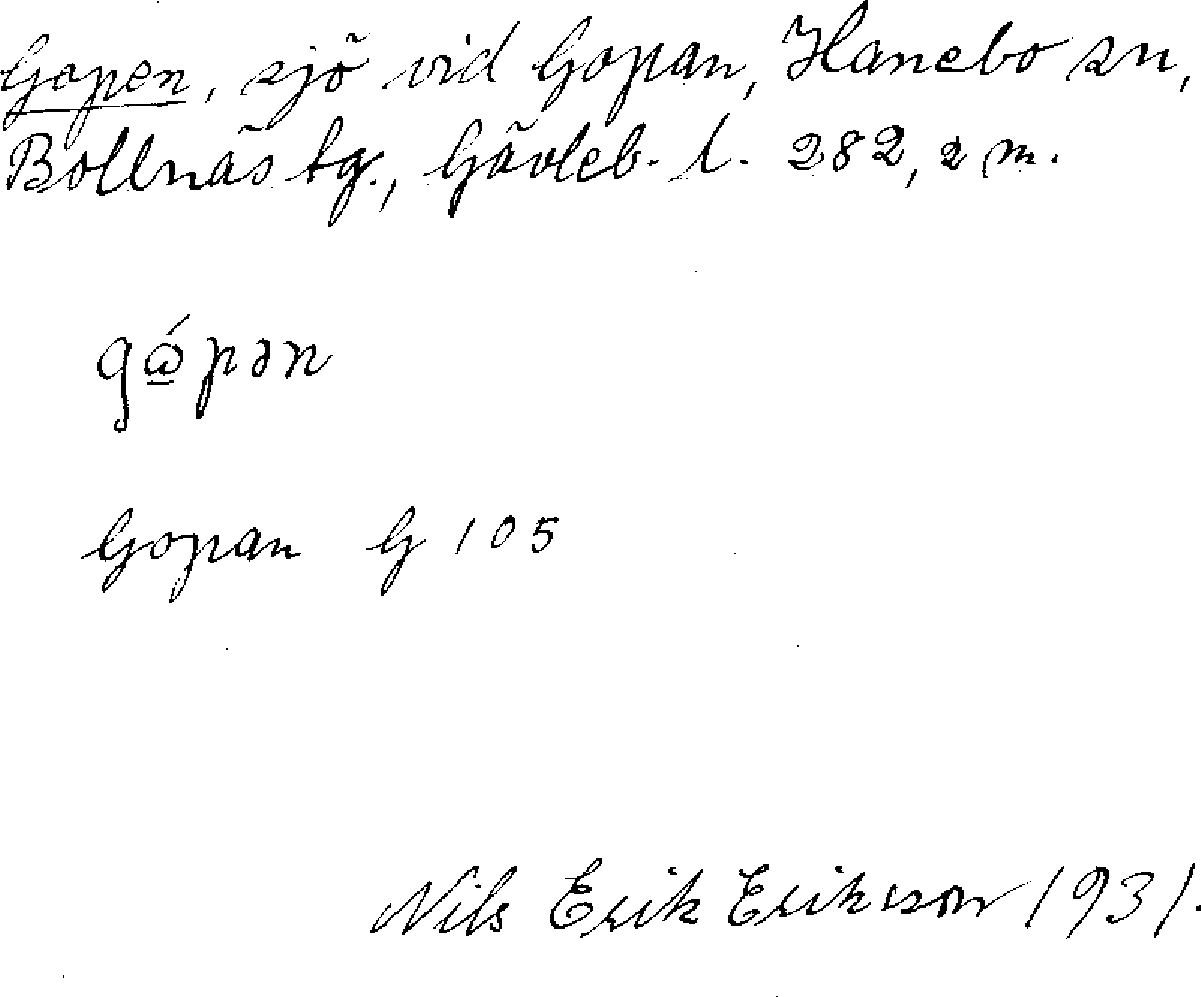 Gopen, sjö vid Gopan, Hanebo sn,
Bollnäs tg., Gävleb. l. 282,2 m.
gώ̲pən
Gopan G 105
Nils Erik Eriksson 1931.